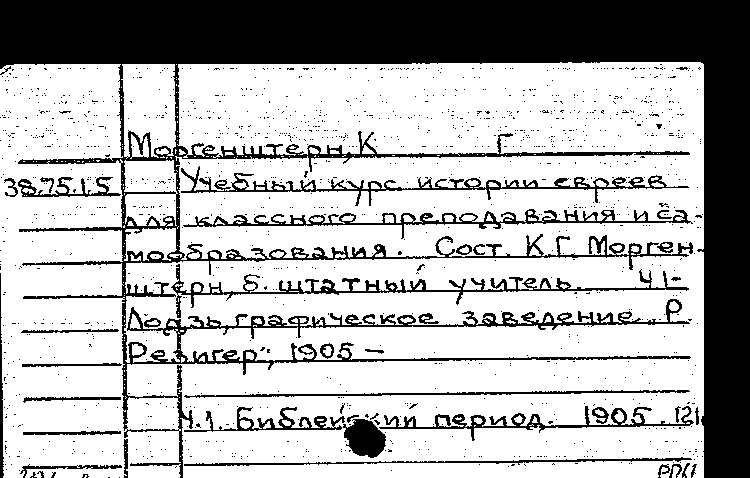 Моргенштерн, К Г
38.75.15 Учебный курс истории евреев
для классного преподавания и са-
мообразования. Сост. К.Г. Морген-
штерн, б. штатный учитель. Ч 1-
Лодзь, графическое заведение „Р.
Резигер", 1905 —
Ч.1. Библейский период. 1905. 121